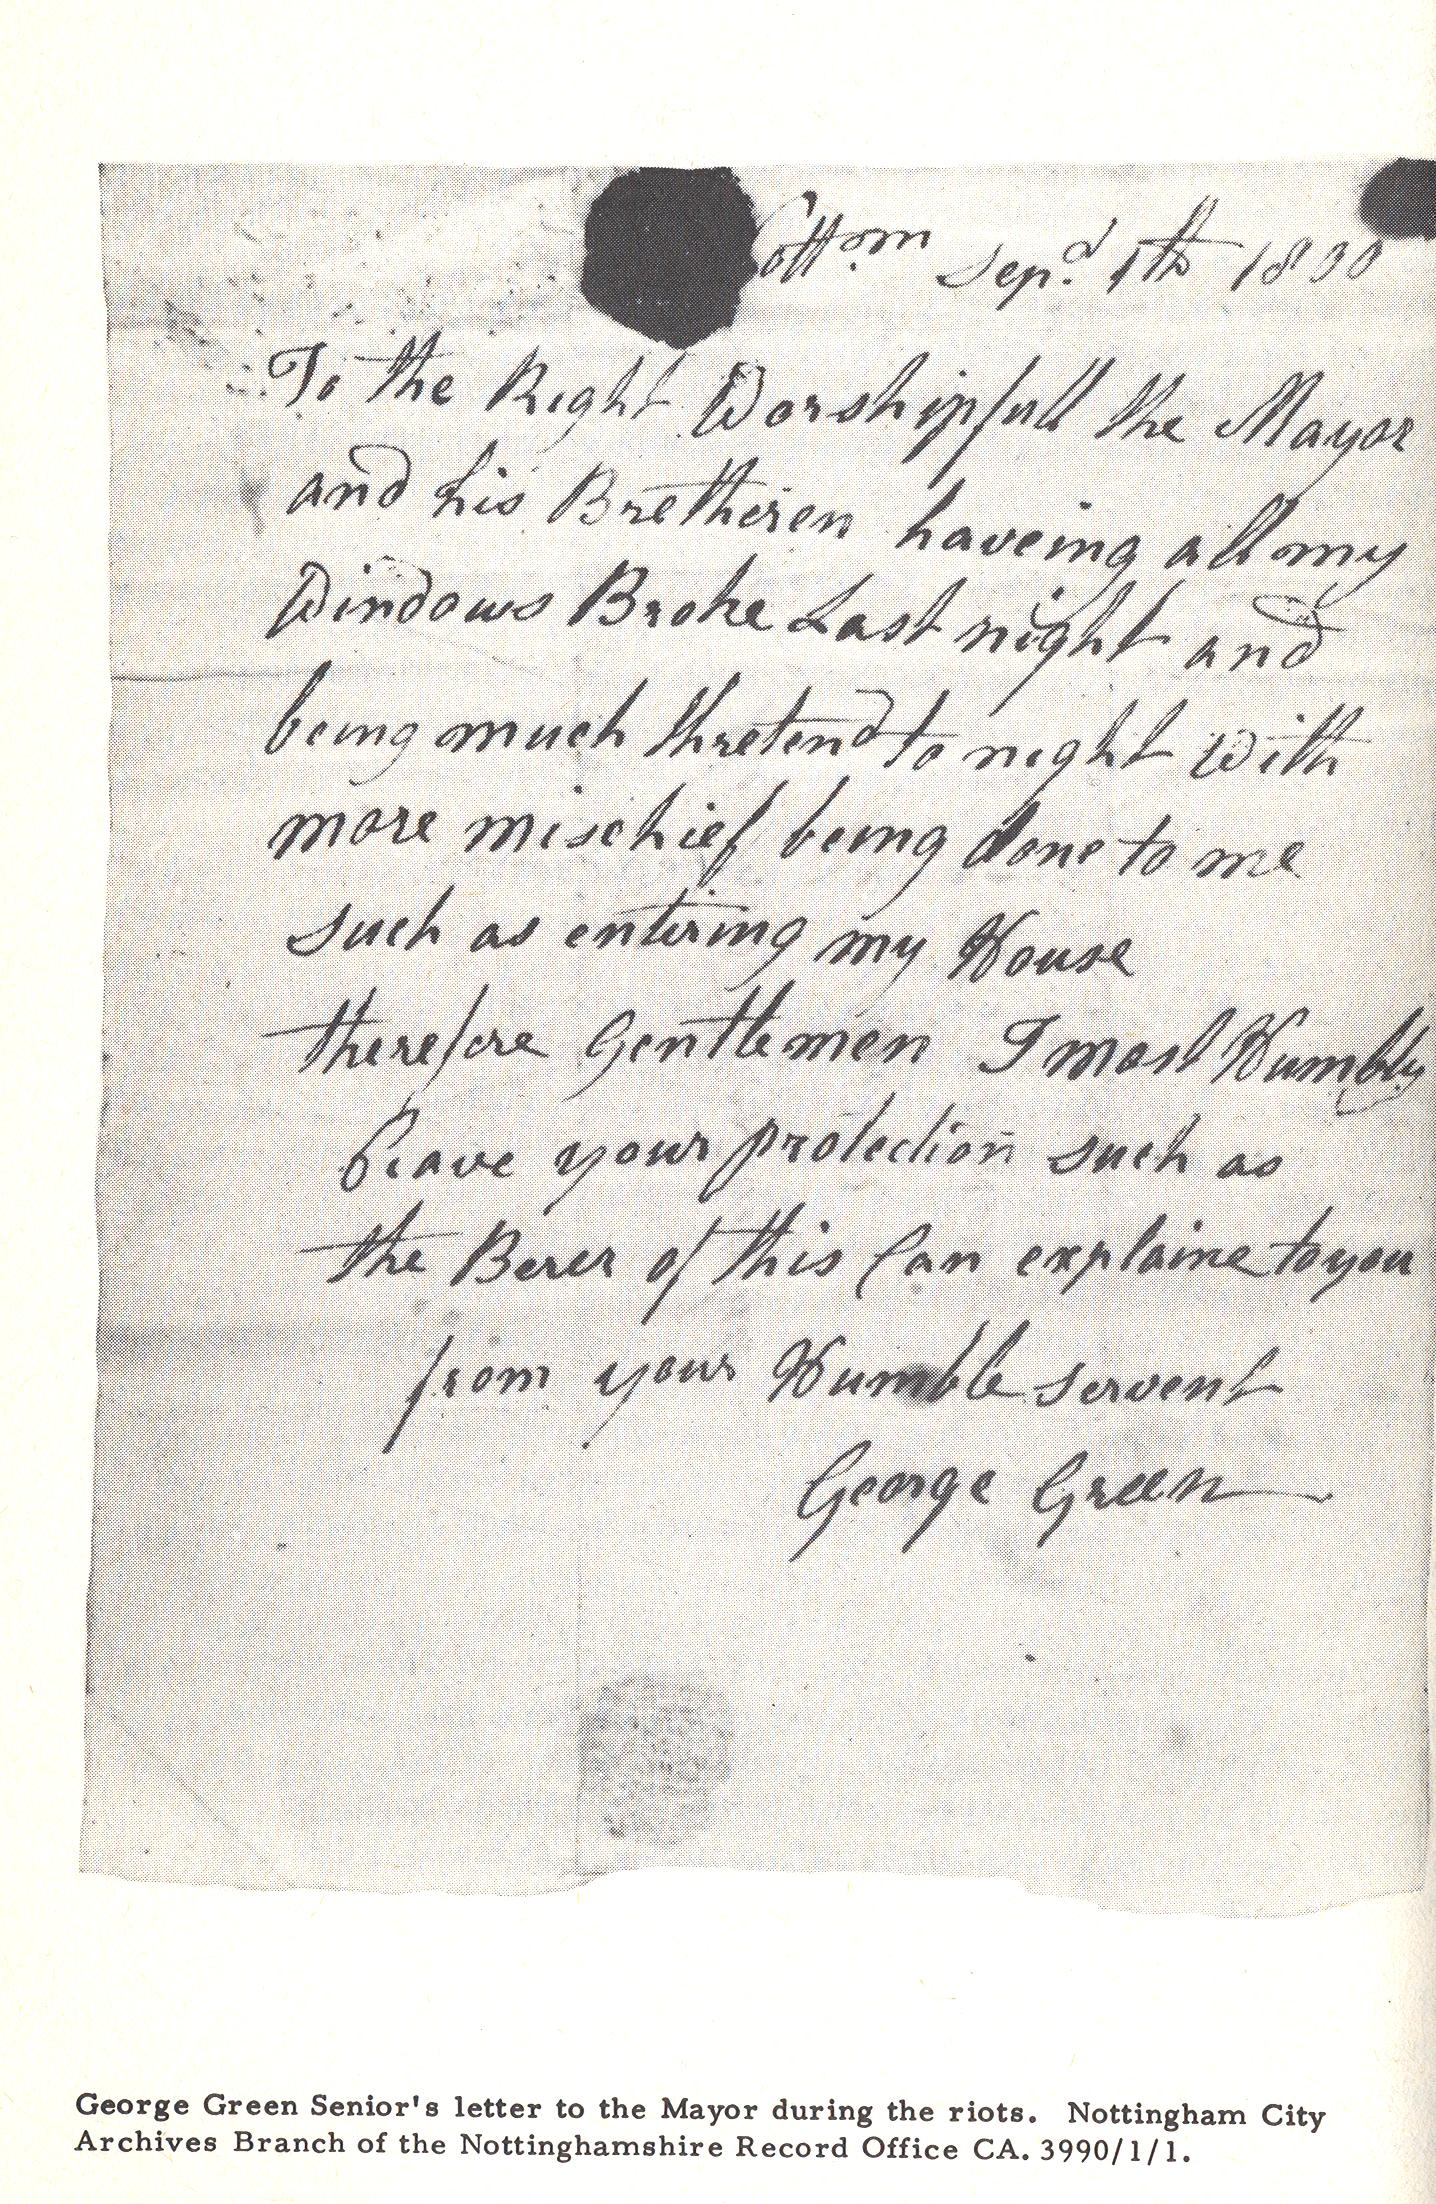 Cottm Sepd 1th 1800
To the Right Worshipfull the Mayor
and his Bretheren haveing all my
Windows Broke Last night and
being much thretend to night With
more mischief being done to me
such as entiring my House
therefore Gentlemen I most Humbly
Crave your protection such as
the Berer of this Can explaine to you
from your Humble servent
George Green
George Green Senior's letter to the Mayor during the riots. Nottingham City
Archives Branch of the Nottinghamshire Record Office CA. 3990/1/1.